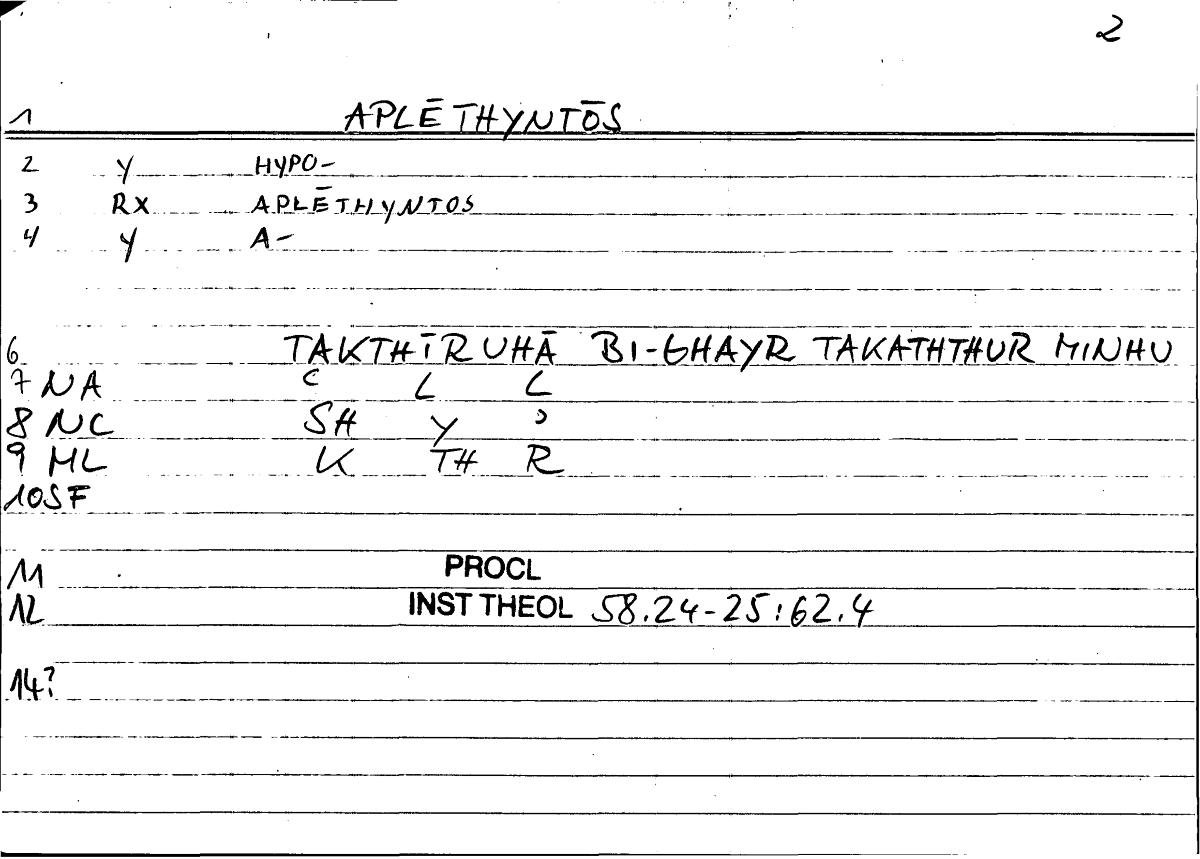 2
1 APLĒTHYNTŌS
2 Y HYPO-
3 RX APLĒTHYNTOS
4 Y A-
6 TAKTHĪRUHĀ BI-GHAYR TAKATHTHUR MINHU
7 NA C L L
8 NC SH Y ɔ
9 ML K TH R
10 SF
11 PROCL
12 INST THEOL 58.24-25:62.4
14?